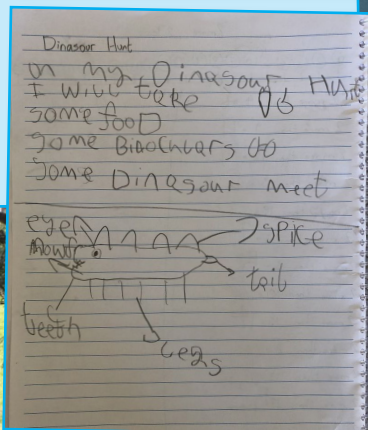 Dinasour Hunt
on my Dinasour Hunt
I will take
some food
some Binochlars
some Dinasour meet
eye
mowth
spike
tail
teeth
Legs